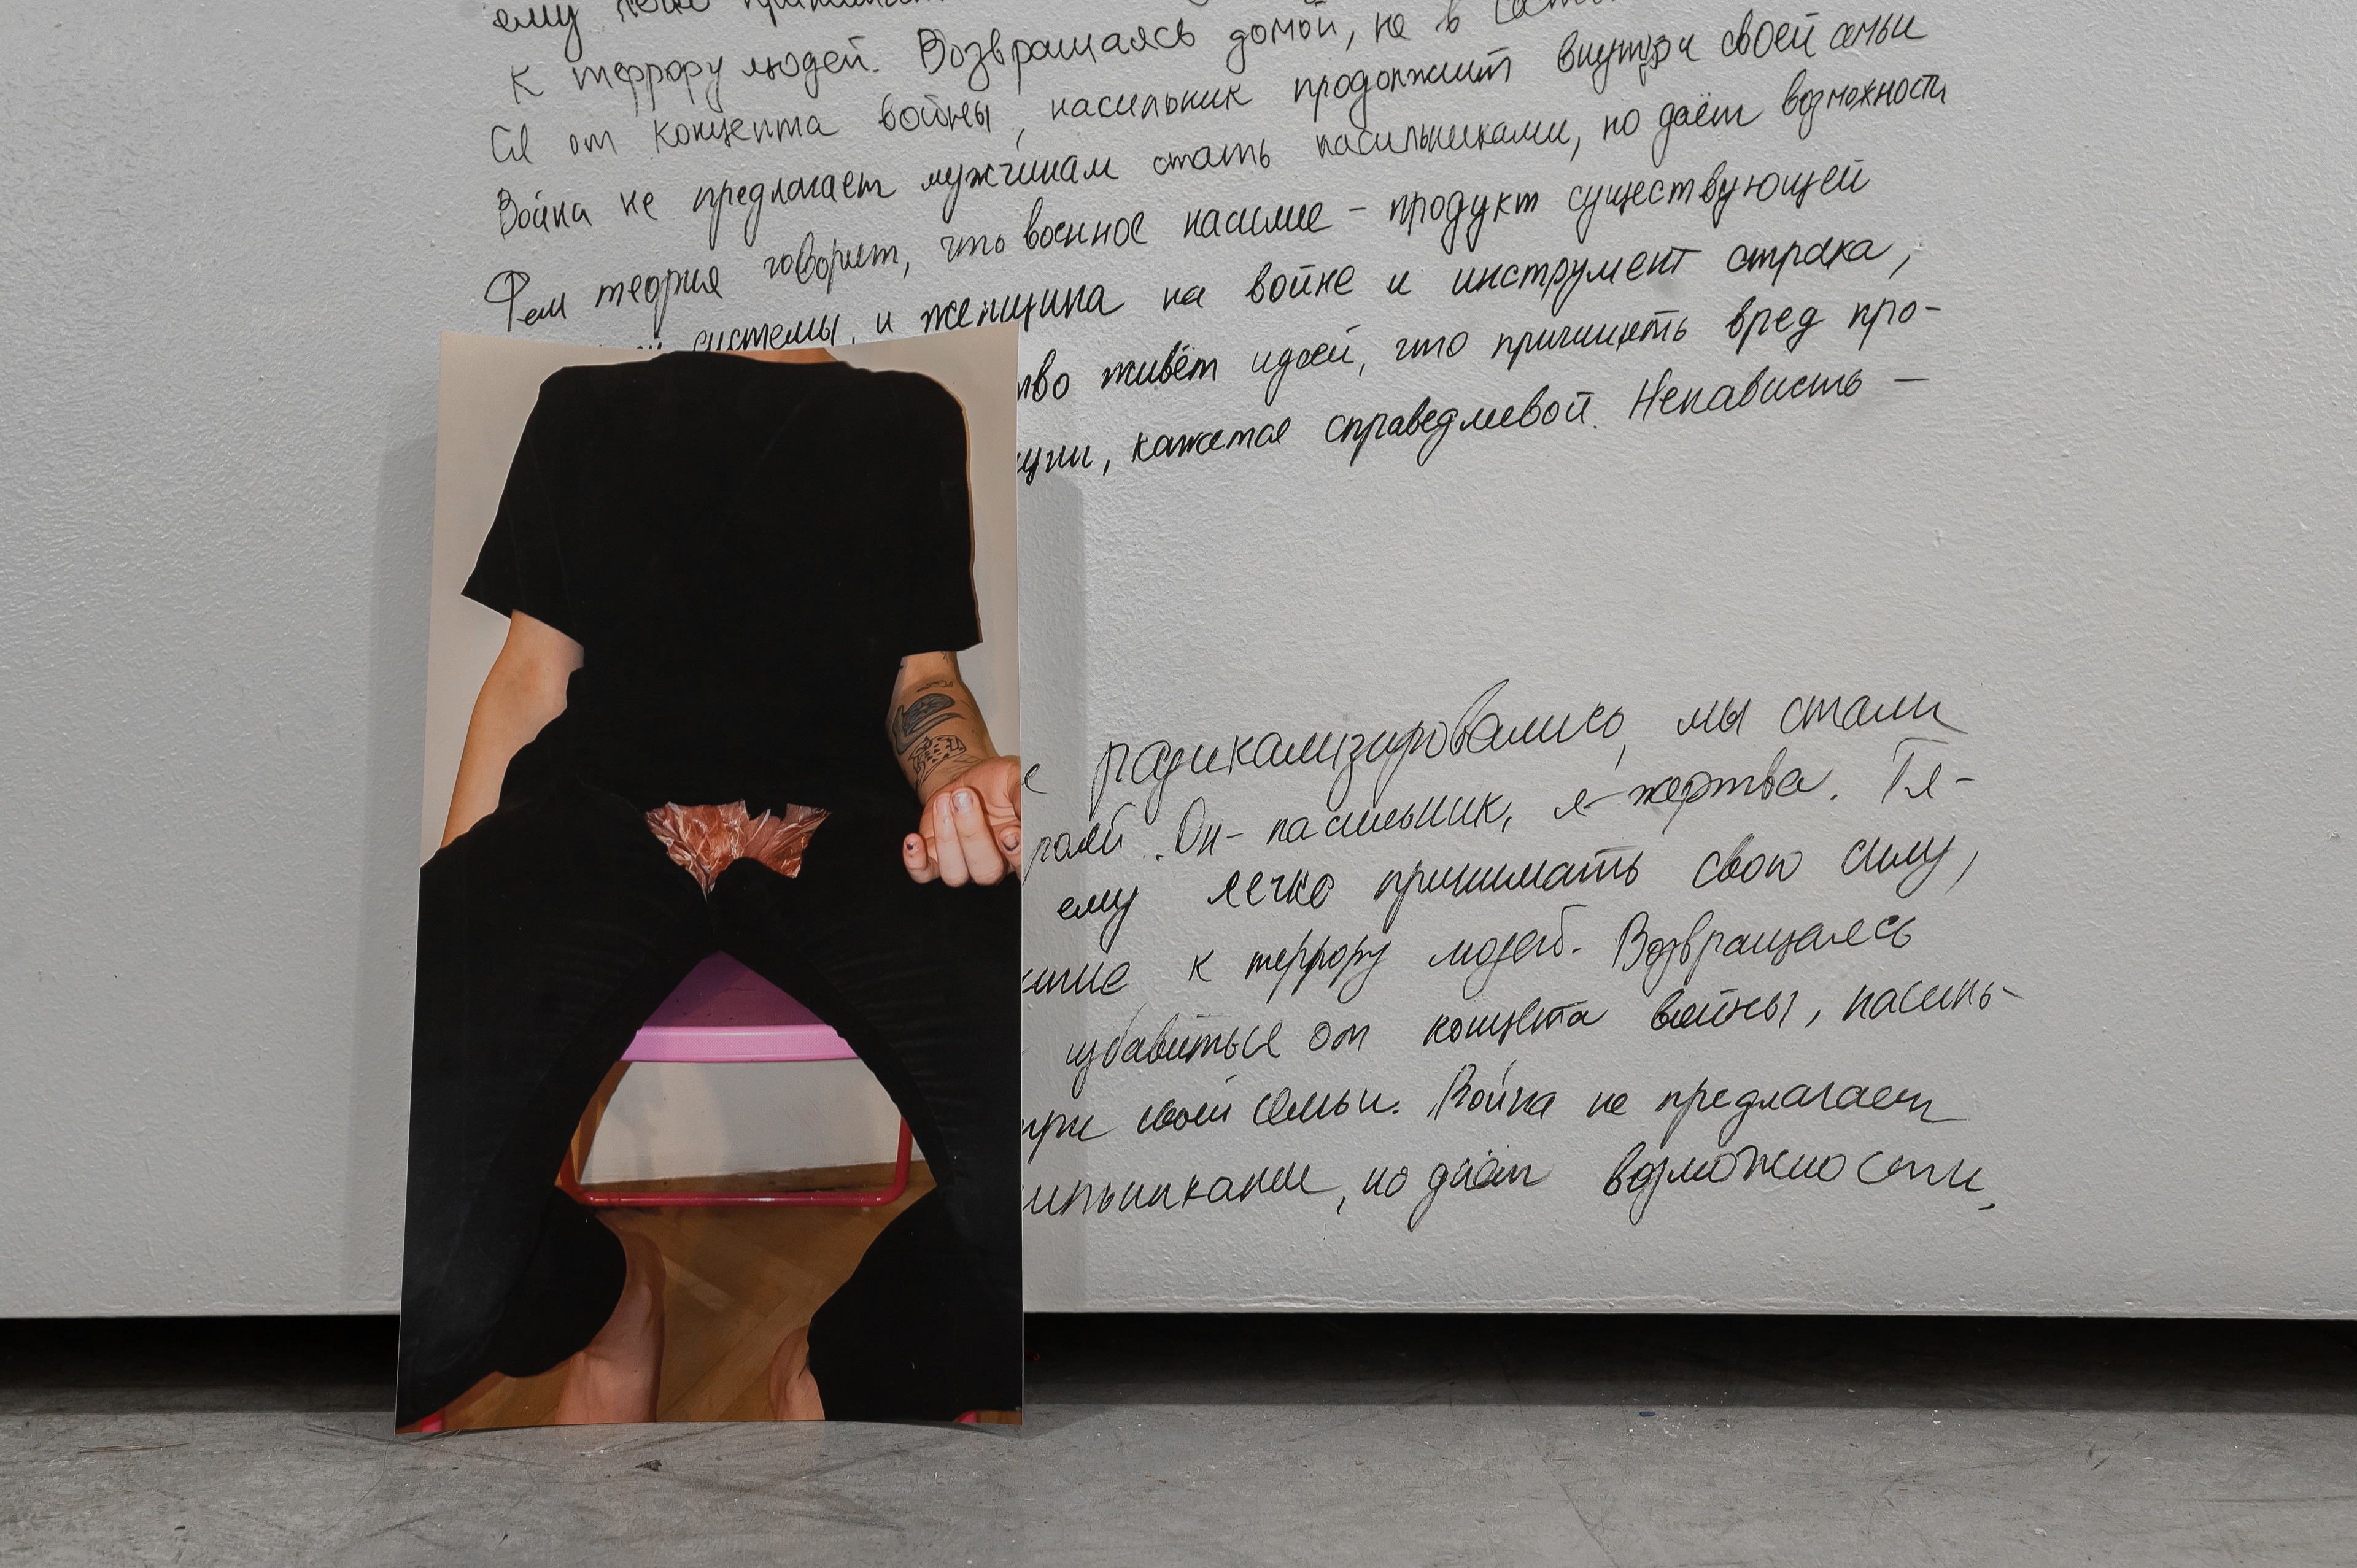 ему легко принимать
к террору людей. Возвращаясь домой, не в
ся от концепта войны, насильник продолжит внутри своей семьи
Война не предлагает мужчинам стать насильниками, но даёт возможности
Фем теория говорит, что военное насилие – продукт существующей
системы, и женщина на войне и инструмент страха,
тво живёт идеей, что причинять вред про-
ции, кажется справедливой. Ненависть –
е радикализировались, мы стали
ролей. Он – насильник, я – жертва. Тя-
ему легко принимать свою силу,
к террору людей. Возвращаясь
избавиться от концепта войны, насиль-
три своей семьи. Война не предлагает
сильниками, но даёт возможности,